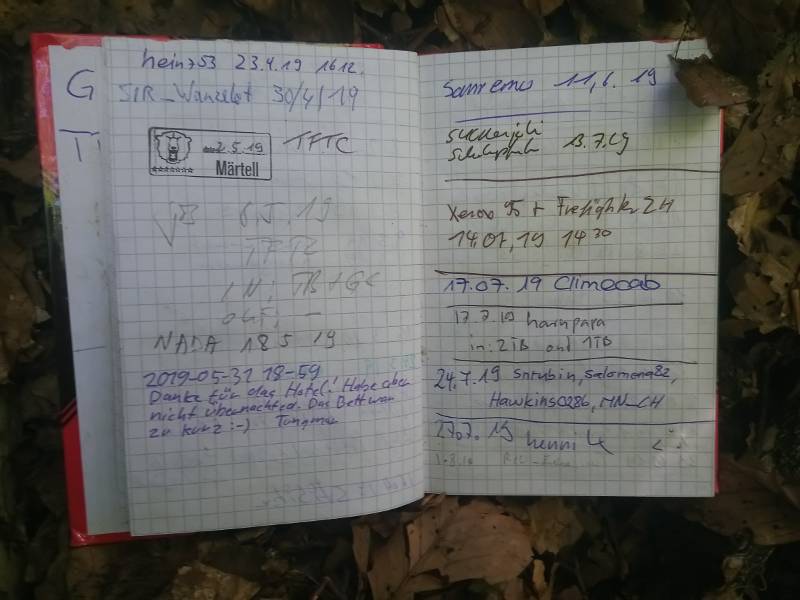 G
T
hein>53 23.4.19 1612.
SIR_Wanzelot 30/4/19
2.5.19
Märtell
TFTC
6.5.19
TFTC
IN: TB+GC
out: -
NADA 18 5 19
2019-05-31 18-59
Danke für das Hotel! Habe aber
nicht übernachted. Das Bett war
zu kurz :-)
Sanremo 11,6.19
13.7.19
Xerox + Firefighter ZH
14,07,19 14³⁰
17.07.19 Climocab
17.7.19 harnpapa
in: 2TB and 1TB
24.7.19 Shrubin, Salomena82,
Hawkins0286, MN_CH
27.07.19 henni